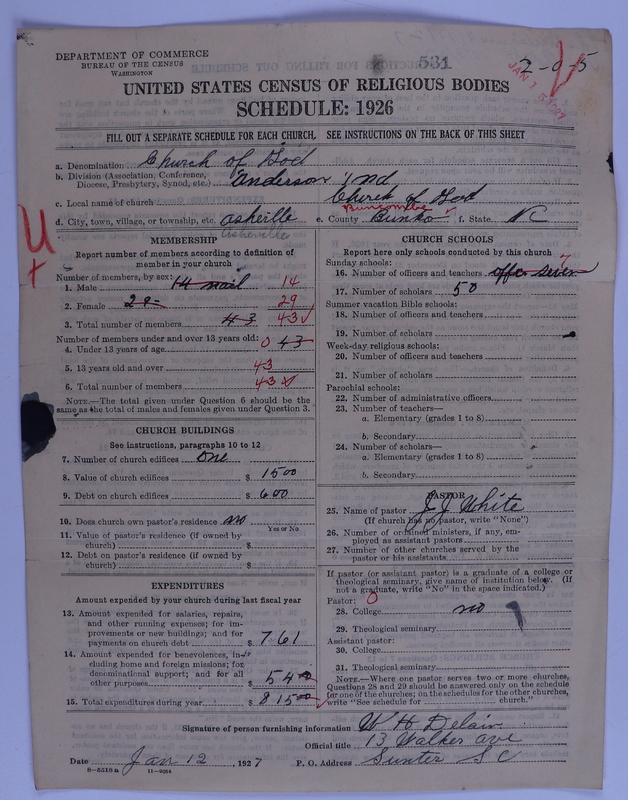 DEPARTMENT OF COMMERCE
BUREAU OF THE CENSUS
WASHINGTON
531
2-0-5
UNITED STATES CENSUS OF RELIGIOUS BODIES
SCHEDULE: 1926
FILL OUT A SEPARATE SCHEDULE FOR EACH CHURCH. SEE INSTRUCTIONS ON THE BACK OF THIS SHEET
a. Denomination Church of God
b. Division (Association, Conference, Diocese, Presbytery, Synod, etc.) Anderson Ind
c. Local name of church Church of God
d. City, town, village, or township, etc. asheville Asheville e. County Bunko Buncombe f. State NC
MEMBERSHIP
Report number of members according to definition of
member in your church
Number of members, by sex:
1. Male 14 mail 14
2. Female 29 29
3. Total number of members 43 43
Number of members under and over 13 years old:
4. Under 13 years of age 0 43
5. 13 years old and over 43
6. Total number of members 43
NOTE.—The total given under Question 6 should be the
same as the total of males and females given under Question 3.
CHURCH BUILDINGS
See instructions, paragraphs 10 to 12
7. Number of church edifices One
8. Value of church edifices $ 1500
9. Debt on church edifices $ 600
10. Does church own pastor's residence no
Yes or No
11. Value of pastor's residence (if owned by
church) $
12. Debt on pastor's residence (if owned by
church) $
EXPENDITURES
Amount expended by your church during last fiscal year
13. Amount expended for salaries, repairs,
and other running expenses; for im-
provements or new buildings; and for
payments on church debt $ 761
14. Amount expended for benevolences, in-
cluding home and foreign missions; for
denominational support; and for all
other purposes $ 54
15. Total expenditures during year $ 815
CHURCH SCHOOLS
Report here only schools conducted by this church
Sunday schools:
16. Number of officers and teachers offer seven 7
17. Number of scholars 50
Summer vacation Bible schools:
18. Number of officers and teachers
19. Number of scholars
Week-day religious schools:
20. Number of officers and teachers
21. Number of scholars
Parochial schools:
22. Number of administrative officers
23. Number of teachers—
a. Elementary (grades 1 to 8)
b. Secondary
24. Number of scholars—
a. Elementary (grades 1 to 8)
b. Secondary
PASTOR
25. Name of pastor J J White
(If church has no pastor, write "None")
26. Number of ordained ministers, if any, em-
ployed as assistant pastors
27. Number of other churches served by the
pastor or his assistants
If pastor (or assistant pastor) is a graduate of a college or
theological seminary, give name of institution below. (If
not a graduate, write "No" in the space indicated.)
Pastor: 0
28. College no
29. Theological seminary
Assistant pastor:
30. College
31. Theological seminary
NOTE.—Where one pastor serves two or more churches,
Questions 28 and 29 should be answered only on the schedule
for one of the churches; on the schedules for the other churches,
write "See schedule for church."
Signature of person furnishing information W H Delair
Official title 13 Walker ave
Date Jan 12, 1927 P. O. Address Sunter SC
8-5518a 11-9264